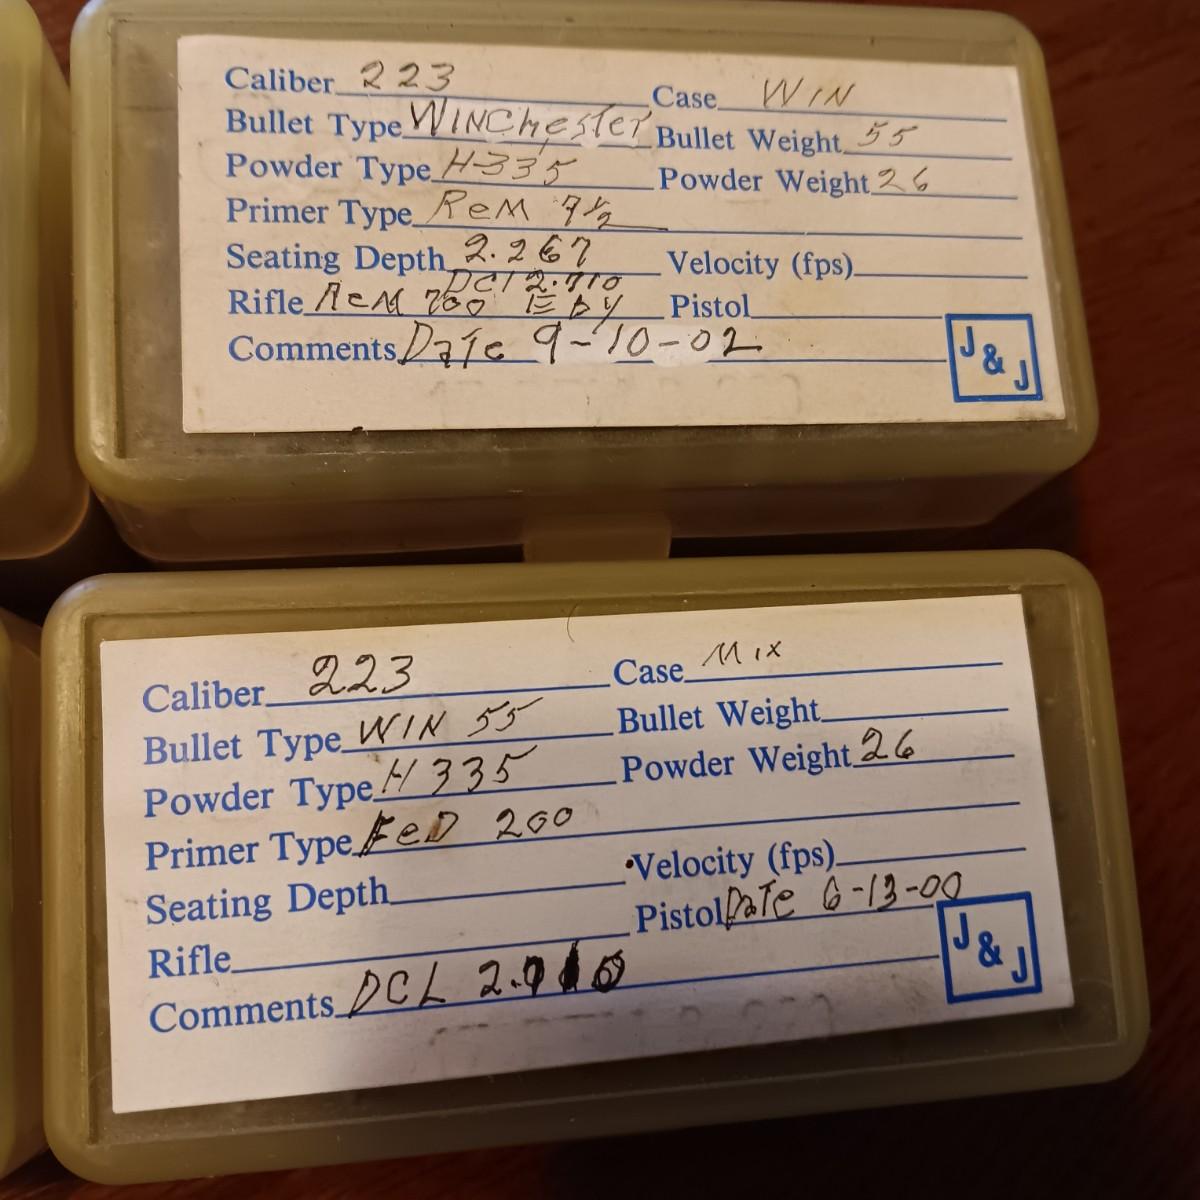 Caliber 223 Case WIN
Bullet Type WINChesTer Bullet Weight 55
Powder Type H-335 Powder Weight 26
Primer Type ReM 7½
Seating Depth 2.267 Velocity (fps)
Rifle ReM 700 Pistol
Comments DaTe 9-10-02
J & J
Caliber 223 Case Mix
Bullet Type WIN 55 Bullet Weight
Powder Type H 335 Powder Weight 26
Primer Type FeD 200
Seating Depth Velocity (fps)
Rifle Pistol DaTe 6-13-00
Comments DCL
J & J